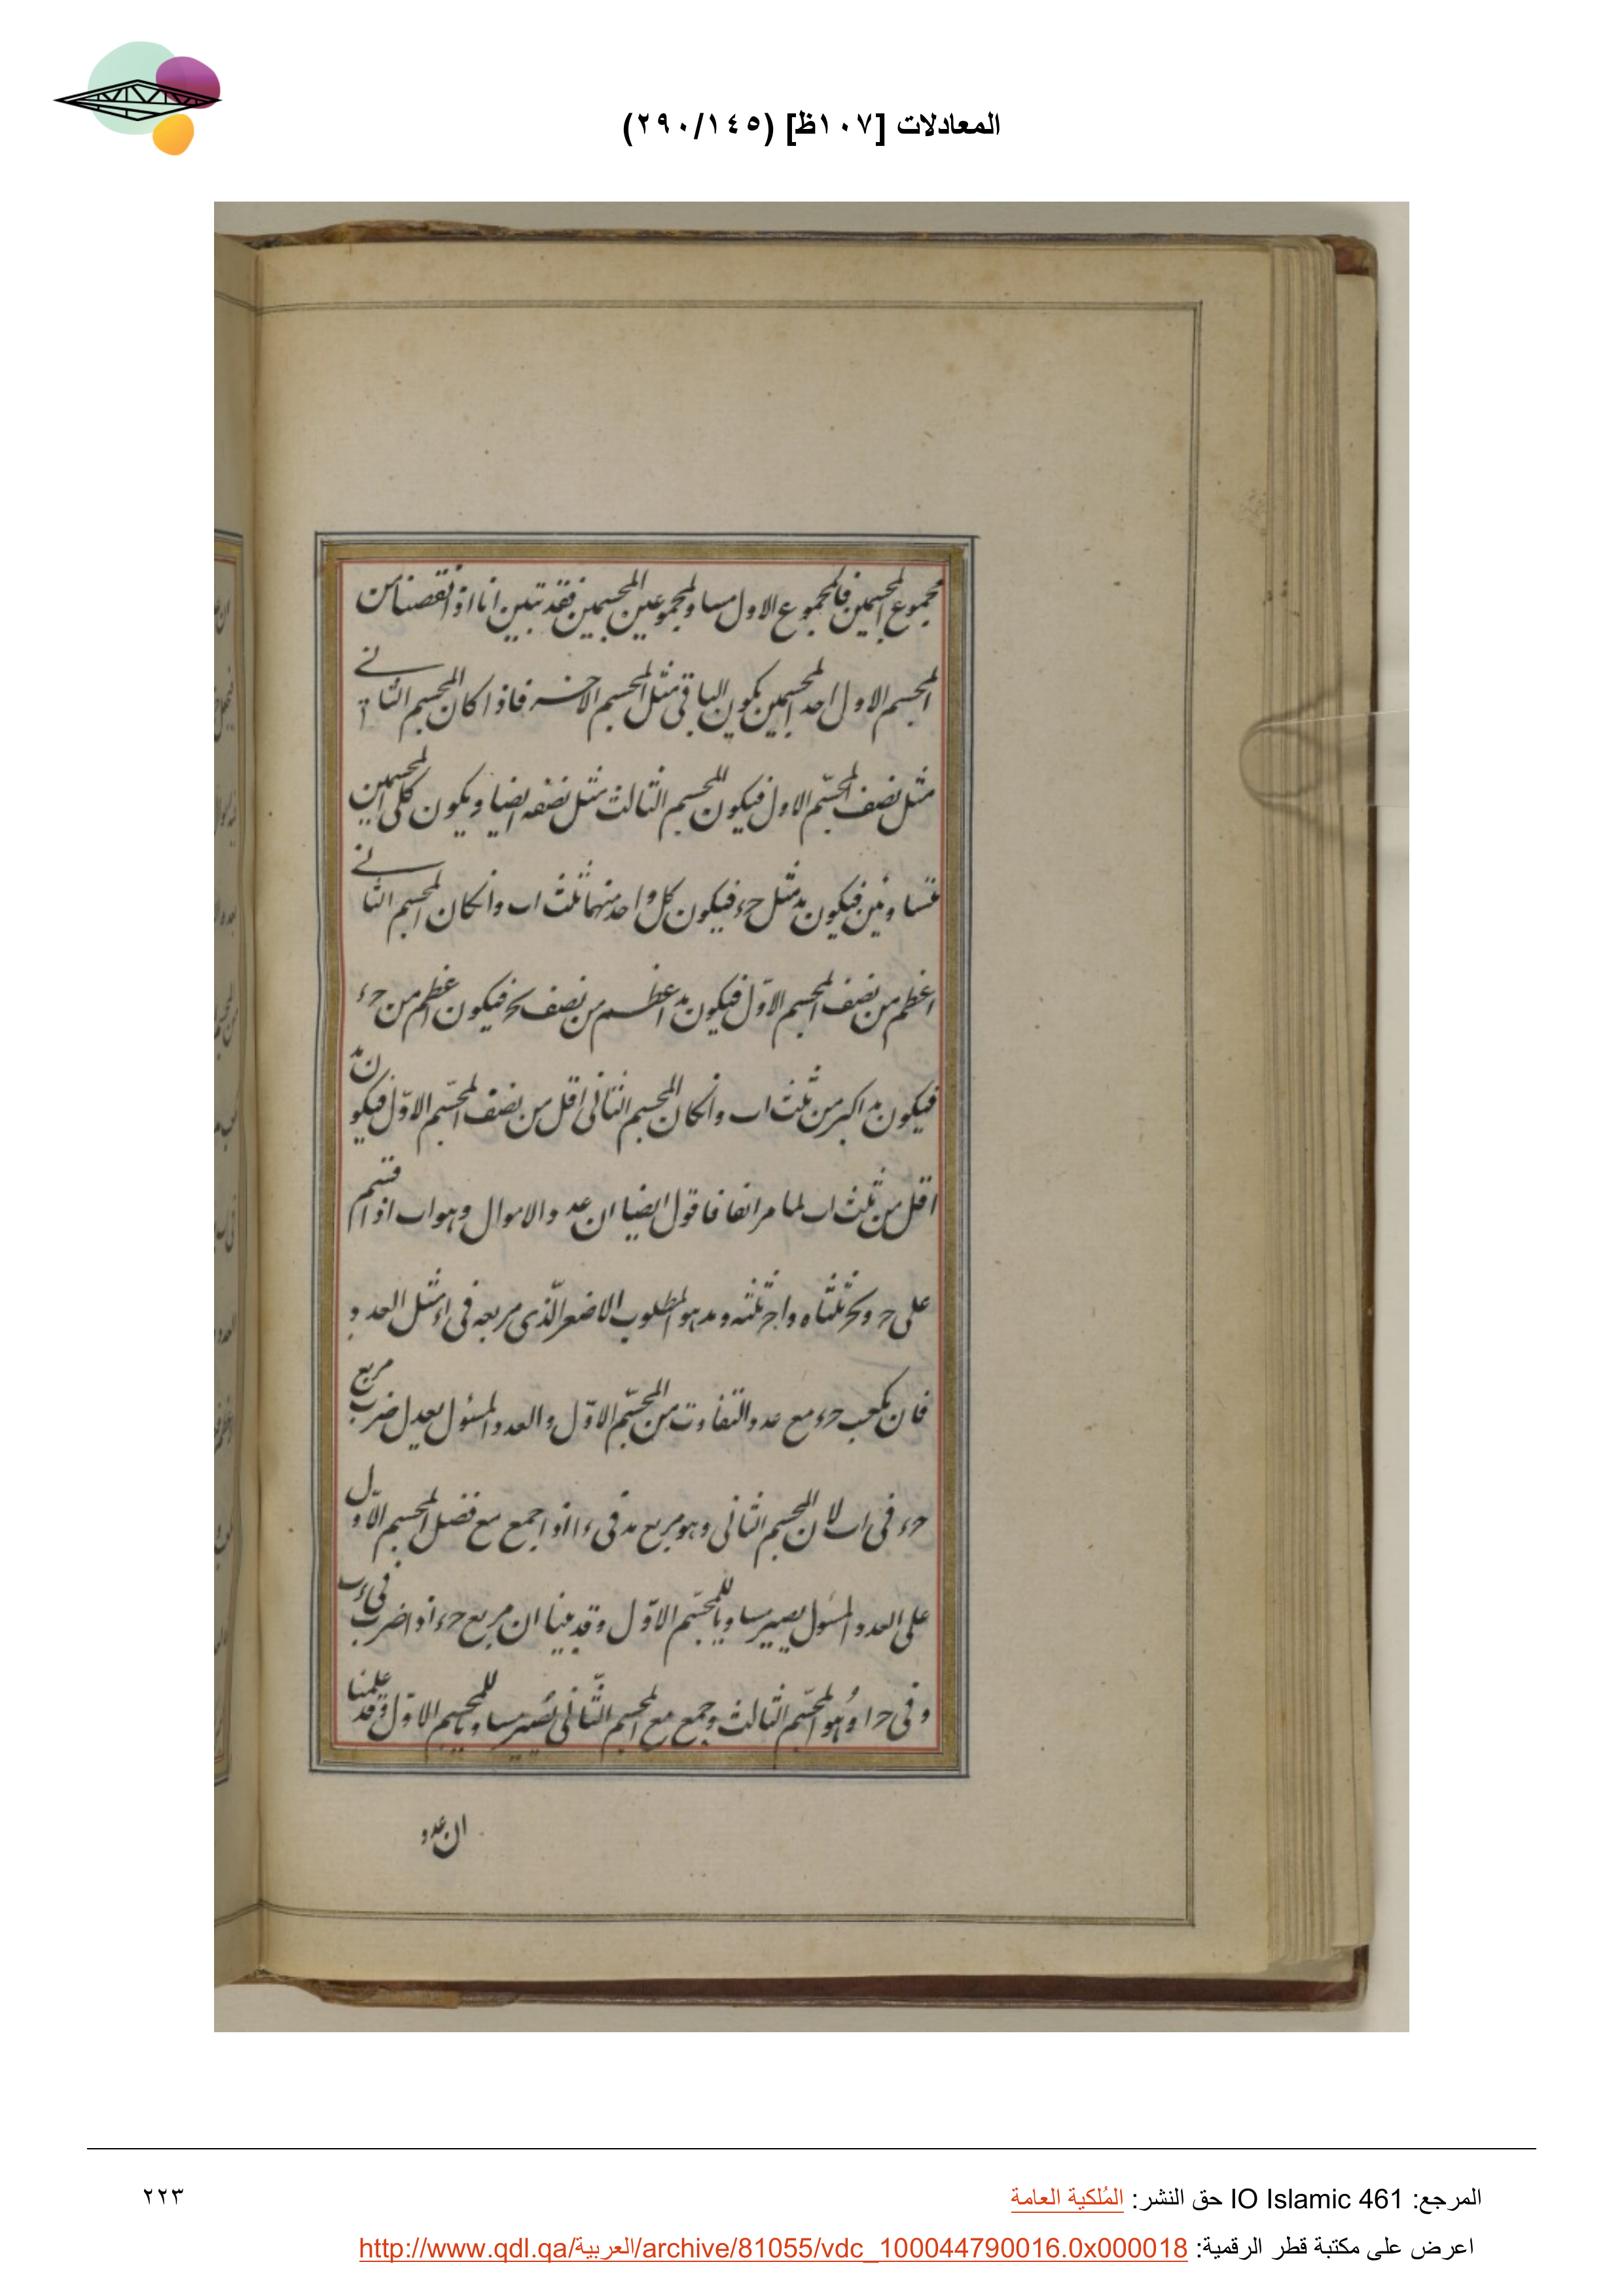 المعادلات [١٠٧ظ] (٢٩٠/١٤٥)
مجموع المجسمين فالمجموع الاول مساو لمجموعين المجسمين فقد تبين انا اذا نقصنا من
المجسم الاول احد المجسمين يكون الباقى مثل المجسم الاخر فاذا كان المجسم الثانے
مثل نصف المجسّم الاول فيكون المجسم الثالث مثل نصفه ايضا ويكون كلى المجسمين
متساويين فيكون مثل فيكون كل واحد منهما ثلث اب وانكان المجسم الثانے
اعظم من نصف المجسم الاوّل فيكون اعظم من نصف فيكون اعظم من
فيكون اكبر من ثلث اب وانكان المجسم الثانى اقل من نصف المجسّم الاوّل فيكون
اقل من ثلث اب لما مر انفا فاقول ايضا ان عدد الاموال وهو اب اذا قسم
على ح و ثلثاه و اح ثلثه و هو المطلوب الاصغر الّذى مربعه فى مثل العدد
فان مكعب مع عدد التفاوت من المجسّم الاوّل والعدد المسئول يعدل ضرب مربع
فى اب لان المجسم الثانى وهو مربع فى اذا جمع مع فضل المجسم الاوّل
على العدد المسئول يصير مساويا للمجسّم الاوّل وقد بينا ان مربع اذا ضرب فى
وفى حا وهو المجسّم الثالث وجمع مع المجسم الثّانى يصير مساويا للمجسم الاوّل وقد علمنا
ان عدد
المرجع: IO Islamic 461 حق النشر: المُلكية العامة
٢٢٣
اعرض على مكتبة قطر الرقمية: http://www.qdl.qa/العربية/archive/81055/vdc_100044790016.0x000018